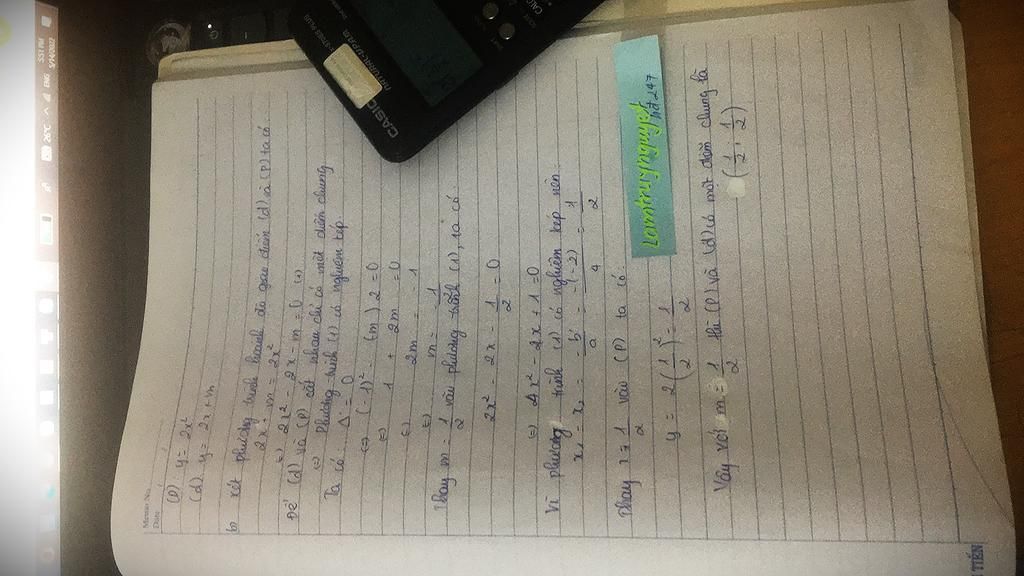 Memo No.
Date
(P) y = 2x²
(d) y = 2x + m
b xét phương trình hoành độ giao điểm (d) và (P) ta có
2x + m = 2x²
⇔ 2x² - 2x - m = 0 (1)
Để (d) và (P) cắt nhau chỉ có một điểm chung
⇔ Phương trình (1) có nghiệm kép.
Ta có: Δ' = 0
⇔ (-1)² - (m) 2 = 0
⇔ 1 + 2m = 0
⇔ 2m = -1
⇔ m = -1/2
Thay m = -1/2 vào phương trình (1), ta có.
2x² - 2x - -1/2 = 0
⇔ 4x² - 2x + 1 = 0
Vì phương trình (1) có nghiệm kép nên.
x₁ = x₂ = -b'/a = -(-2)/4 = 1/2
Thay x = 1/2 vào (P) ta có:
y = 2(1/2)² = 1/2
Vậy với m = -1/2 thì (P) và (d) có một điểm chung là
(1/2; 1/2)
Lamtruynguyet
hd247
CASIO
NATURAL-V.P.A.M.
TIẾN
26°C
ENG
5:51 PM
5/14/2022